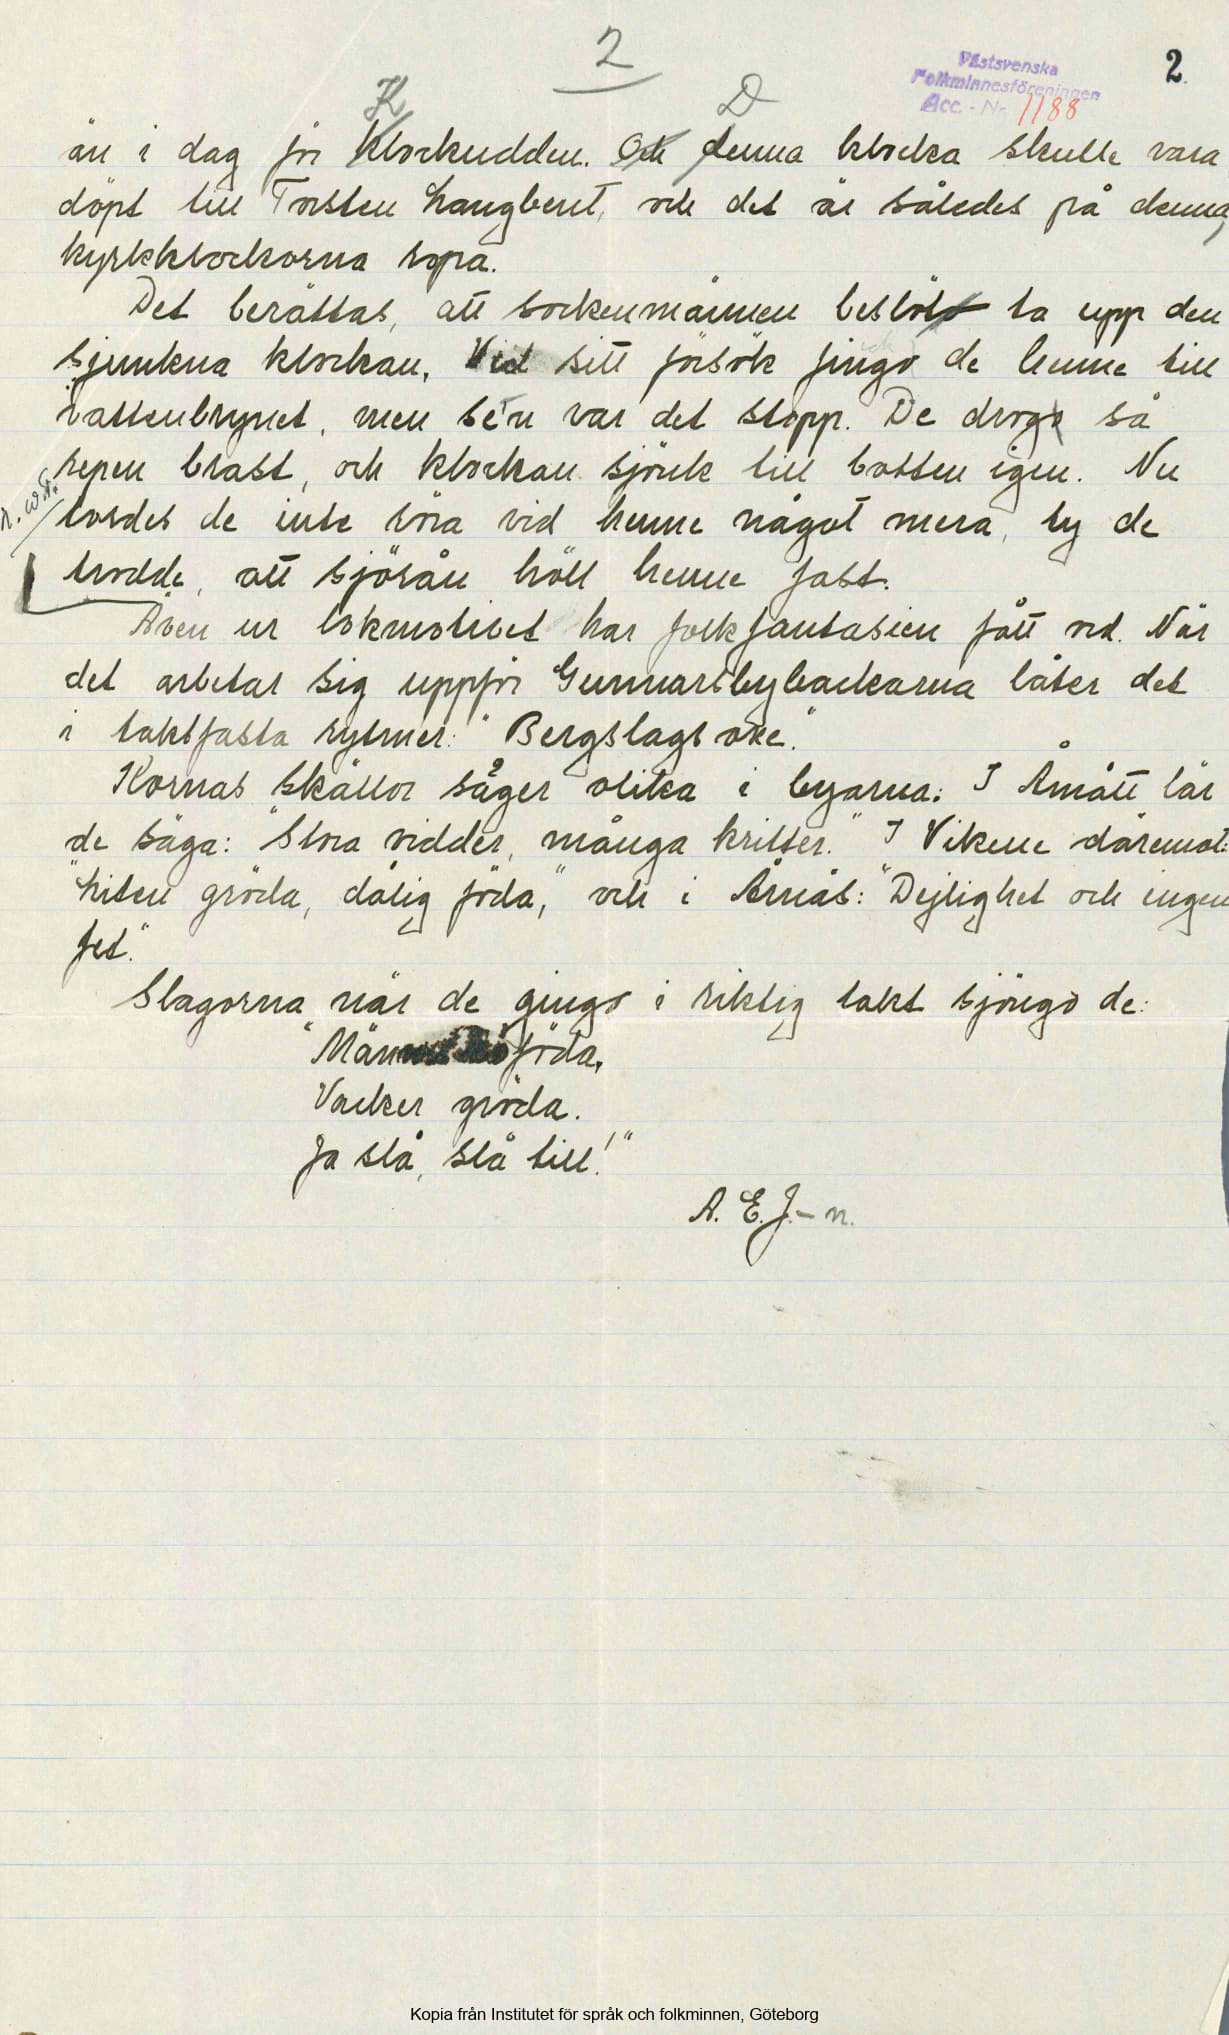 2
2.
Västsvenska
Folkminnesföreningen
Acc. - Nr 1188
K D
än i dag för Klockudden. Och denna klocka skulle vara
döpt till Torsten Langbent, och det är således på denna,
kyrkklockorna ropa.
Det berättas, att sockenmännen beslöto ta upp den
sjunkna klockan. Vid sitt försök fingo de henne till
vattenbrynet, men se'n var det stopp. De drogo så
repen brast, och klockan sjönk till botten igen. Nu
tordes de inte röra vid henne något mera, ty de
trodde, att sjörån höll henne fast.
Även ur lokmotivet har folkfantasien fått ord. När
det arbetar sig uppför Gunnarsbybackarna låter det
i taktfasta rytmer: "Bergslags oke."
Kornas skällor säger olika i byarna. I Åmått lär
de säga: "Stora vidder, många kritter." I Vikene däremot:
"Liten gröda, dålig föda," och i Årnäs: "Dejlighet och ingen
fet."
Slagorna när de gingo i riktig takt sjöngo de:
föda,
Vacker gröda.
Ja slå, slå till!"
A. E. J.-n.
Kopia från Institutet för språk och folkminnen, Göteborg